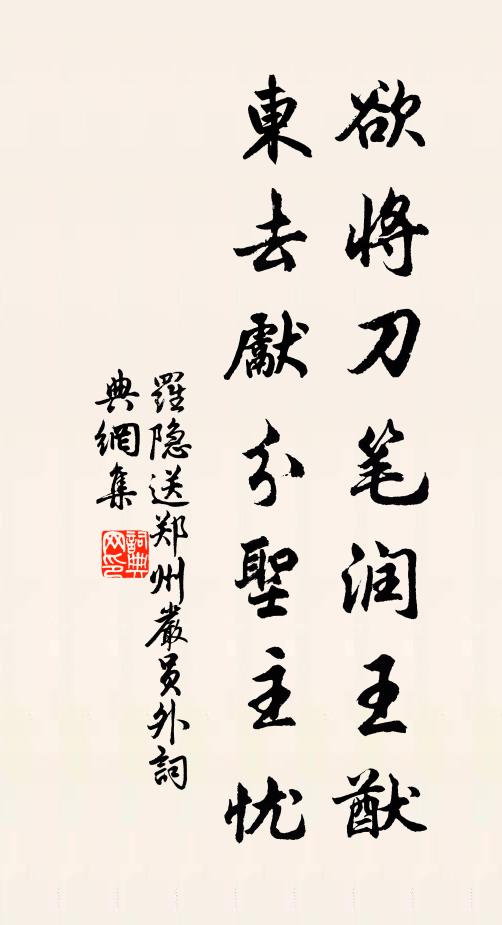 欲将刀笔润王猷
東去獻分聖主忧
羅隐送郑州嚴员外詞
典網集
詞典网印